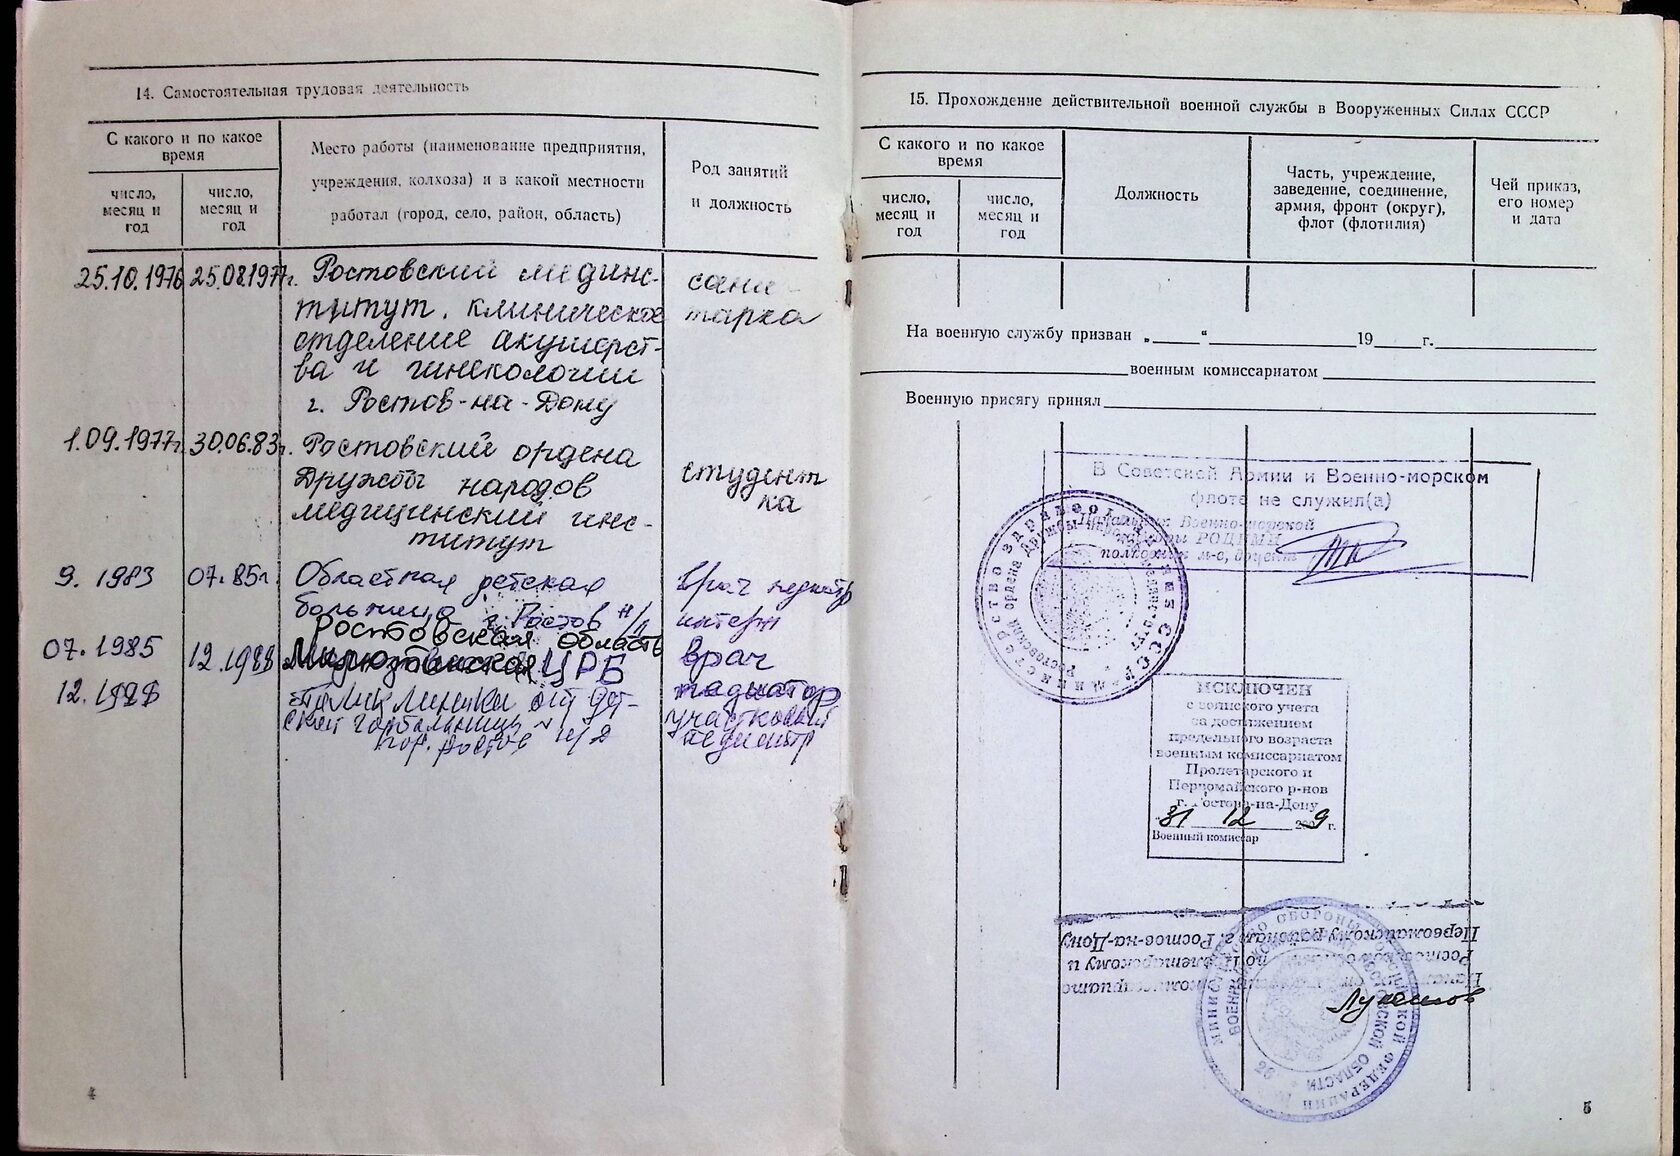 14. Самостоятельная трудовая деятельность
С какого и по какое время
число, месяц и год
число, месяц и год
Место работы (наименование предприятия,
учреждения, колхоза) и в какой местности
работал (город, село, район, область)
Род занятий
и должность
25.10.1976 25.08.1977г. Ростовский мединс- сани-
титут, клиническое тарка
отделение акушерст-
ва и гинекологии
г. Ростов-на-Дону
1.09.1977г. 30.06.83г. Ростовский ордена
Дружбы народов студент
медицинский инс- ка
титут
9. 1983 07.85г. Областная детская врач педиатр
больница г. Ростов н/Д интерн
Ростовская область
07. 1985 12.1988 ЦРБ врач
12.1988 Поликлиника дет- педиатор
ской горбольницы участковый
гор. Ростов н/Д педиатр
4
15. Прохождение действительной военной службы в Вооруженных Силах СССР
С какого и по какое
время
число,
месяц и
год
число,
месяц и
год
Должность
Часть, учреждение,
заведение, соединение,
армия, фронт (округ),
флот (флотилия)
Чей приказ,
его номер
и дата
На военную службу призван „ “ 19 г.
военным комиссариатом
Военную присягу принял
В Советской Армии и Военно-морском
флоте не служил(а)
Военно-морской
РОДНМИ
полковник м-с, доцент
МИНИСТЕРСТВО ЗДРАВООХРАНЕНИЯ СССР
Ростовский ордена Дружбы народов
ИСКЛЮЧЕН
с воинского учета
за достижением
предельного возраста
военным комиссариатом
Пролетарского и
Первомайского р-нов
г. Ростова-на-Дону
31 12 2009 г.
Военный комиссар
Ростовской области по Пролетарскому и
Первомайскому районам г. Ростов-на-Дону
МИНИСТЕРСТВО ОБОРОНЫ РОССИЙСКОЙ ФЕДЕРАЦИИ
РОСТОВСКОЙ ОБЛАСТИ
5